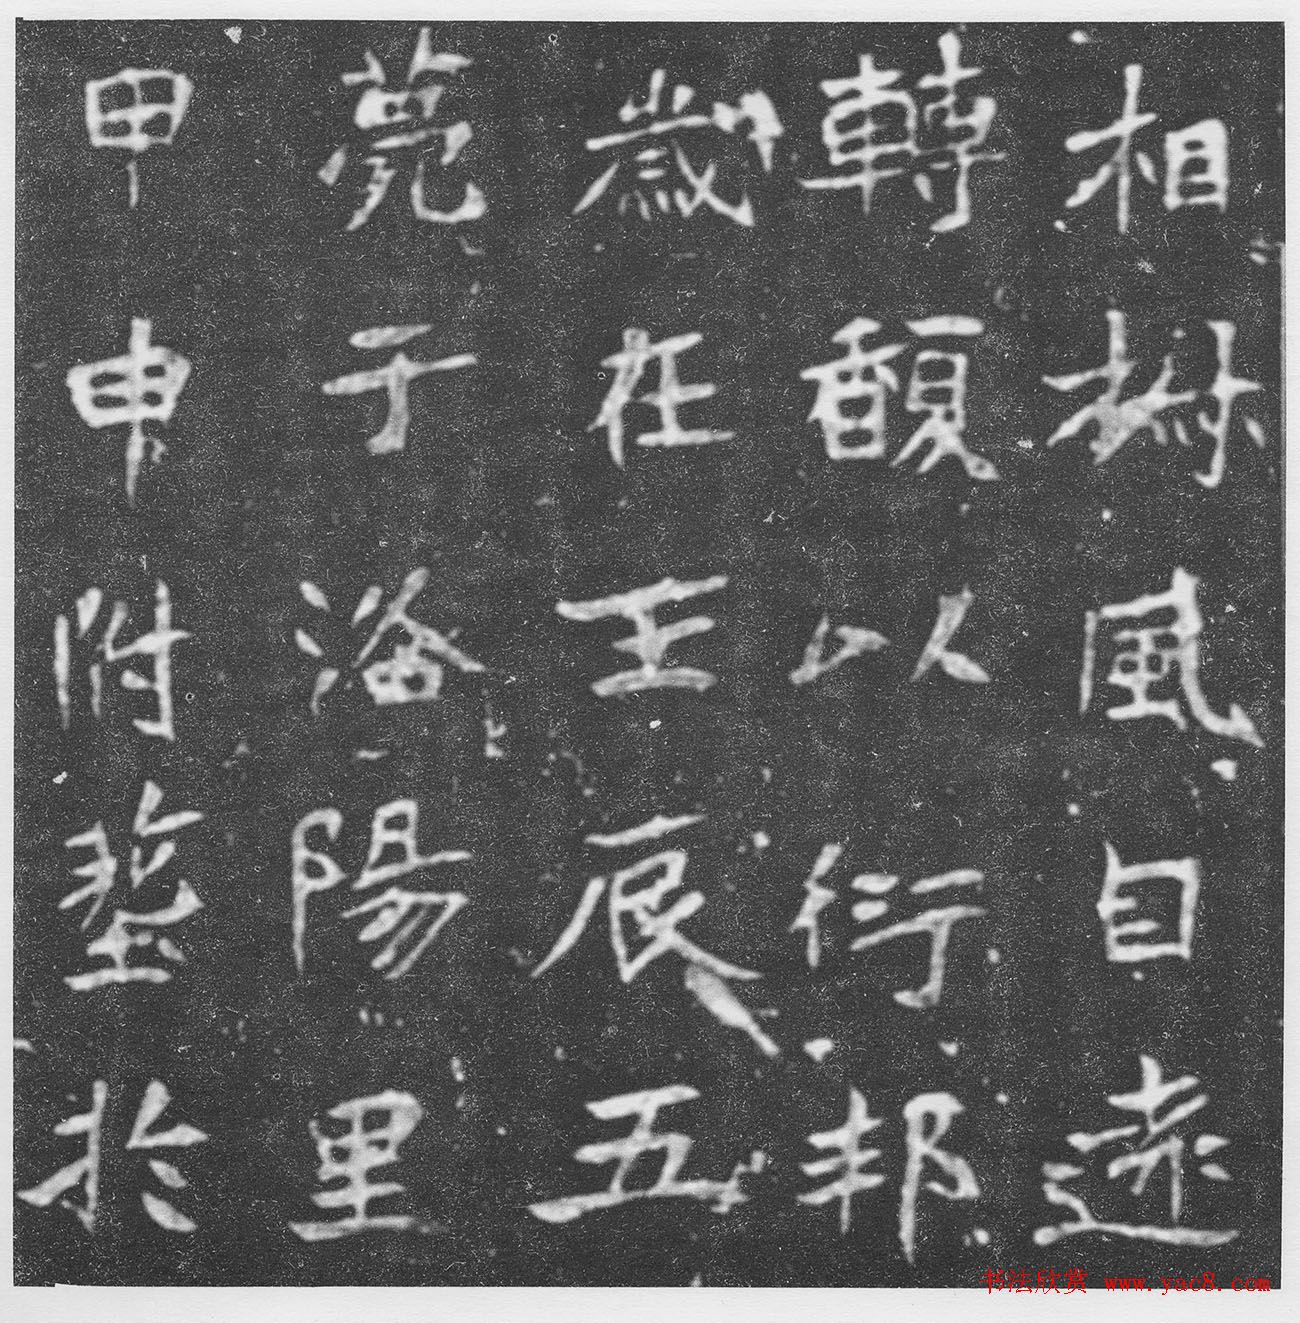 相樹風自遠
轉馥以衍邦
歲在壬辰五
薨于洛陽里
甲申附於
书法欣赏 www.yac8.com